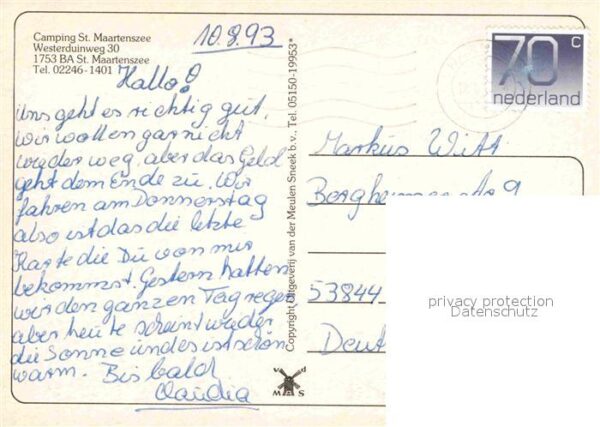 Camping St. Maartenszee
Westerduinweg 30
1753 BA St. Maartenszee
Tel. 02246-1401
10.8.93
Hallo!
Uns geht es richtig gut,
wir wollen gar nicht
wieder weg, aber das Geld
geht dem Ende zu. Wir
fahren am Donnerstag
also ist das die letzte
Karte die Du von mir
bekommst. Gestern hatten
wir den ganzen Tag regen
aber heute scheint wieder
die Sonne und es ist schön
warm. Bis bald
Claudia
Copyright Uitgeverij van der Meulen Sneek b.v., Tel. 05150-19953*
M S
70 c
nederland
Markus Witt
53844
Deut
privacy protection
Datenschutz